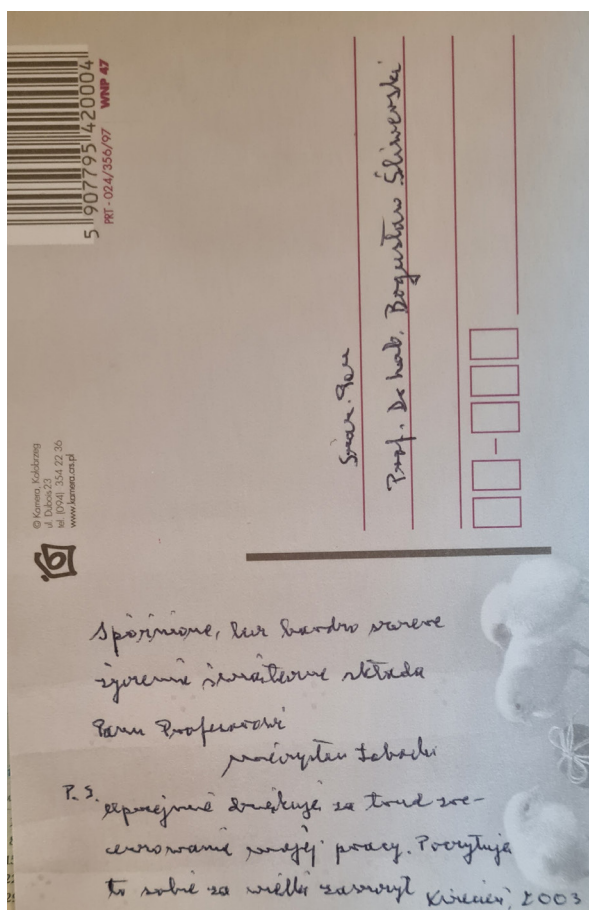 5 907795 420004
PRT - 024/356/97 WNP 47
© Kamera, Kołobrzeg
ul. Dubois 23
tel. (094) 354 22 36
www.kamera.crs.pl
Szan. Pan
Prof. Dr hab. Bogusław Śliwerski
Spóźnione, lecz bardzo szczere
życzenia świąteczne składa
Panu Profesorowi
Mieczysław Łobocki
P.S. Uprzejmie dziękuję za trud zre-
cenzowania mojej pracy. Poczytuję
to sobie za wielki zaszczyt
Kwiecień, 2003